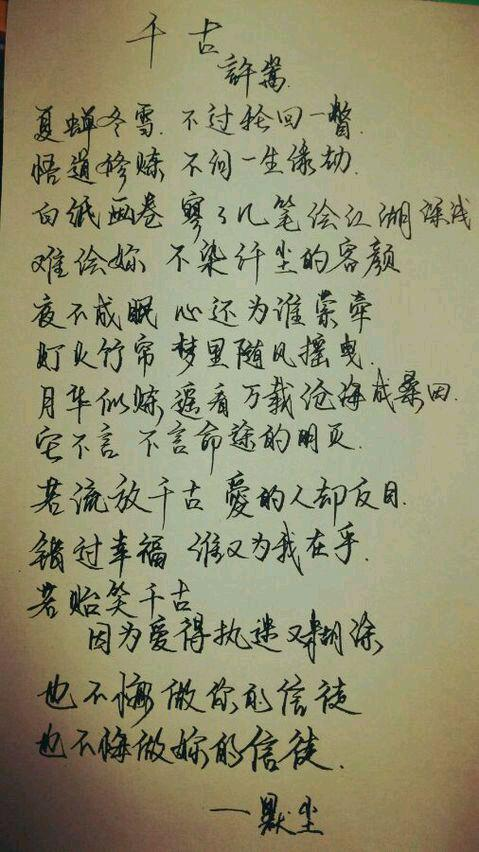 千古
許嵩
夏蝉冬雪. 不过轮回一瞥.
悟道修炼 不问一生缘劫.
白纸画卷 寥了几笔绘江湖深浅
难绘妳 不染纤尘的容颜
夜不成眠 心还为谁萦牵
灯火竹帘 梦里随风摇曳.
月华似炼 遥看万载沧海成桑田.
它不言 不言命途的明灭.
若流放千古 愛的人却反目.
错过幸福 谁又为我在乎.
若贻笑千古
因为爱得执迷又糊涂
也不悔做你的信徒
也不悔做妳的信徒.
—默尘